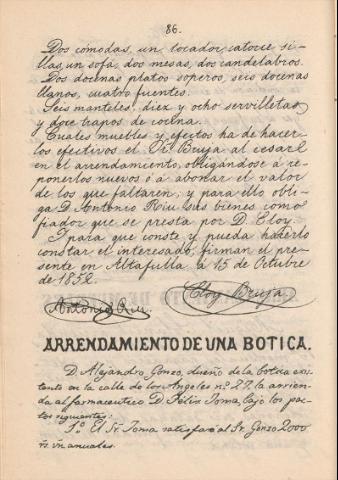 86.
Dos cómodas, un tocador, catorce si-
llas, un sofá, dos mesas, dos candelabros.
Dos docenas platos soperos, seis docenas
llanos, cuatro fuentes.
Seis manteles, diez y ocho servilletas
y doce trapos de cocina.
Cuales muebles y efectos ha de hacer-
los efectivos el Sr. Bruja al cesar
en el arrendamiento, obligándose á re-
ponerlos nuevos ó á abonar el valor
de los que faltaren; y para ello obli-
ga D. Antonio Riu sus bienes como
fiador que se presta por D. Eloy.
Y para que conste y pueda hacerlo
constar el interesado, firman el pre-
sente en Altafulla á 15 de Octubre
de 1852.
Antonio Riu. Eloy Bruja
ARRENDAMIENTO DE UNA BOTICA.
D. Alejandro Gonzo, dueño de la botica exis-
tente en la calle de los Angeles nº 27, la arrien-
da al farmaceutico D. Félix Toma, bajo los pac-
tos siguientes:
1º El Sr. Toma satisfará al Sr. Gonzo 2000
rs. vn. anuales.